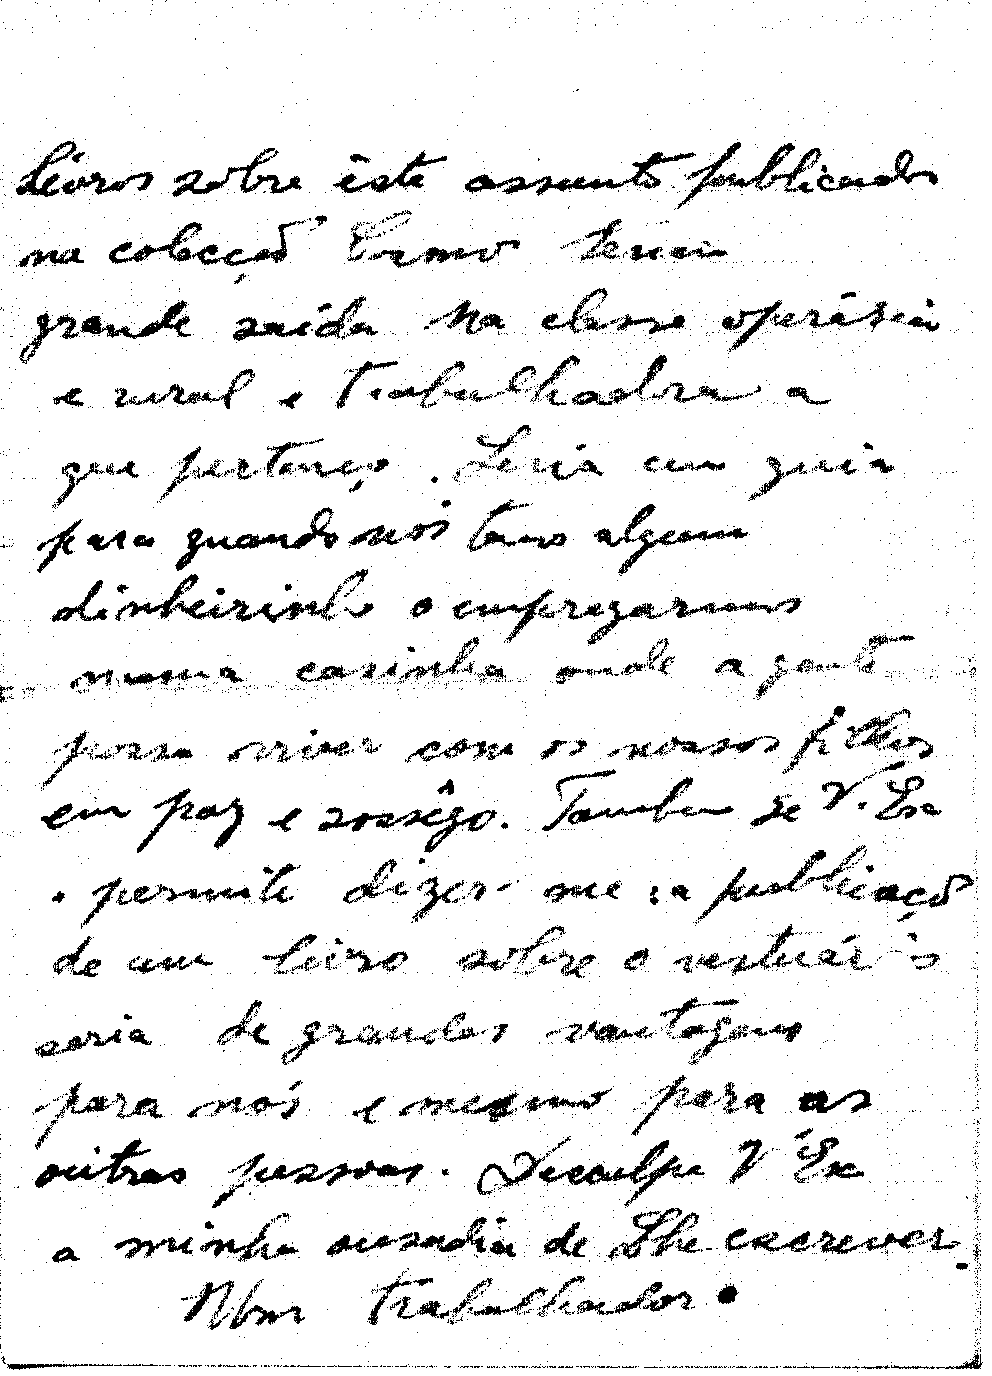 Livros sobre êste assunto publicados
na colecção Cosmo teriam
grande saída na classe operária
e rural e trabalhadora a
que pertenço. Seria um guia
para quando nós temos algum
dinheirinho o empregarmos
numa casinha onde a gente
possa viver com os nossos filhos
em paz e sossêgo. Tambem se V. Ex
. permite dizer-me : a publicação
de um livro sobre o vestuário
seria de grandes vantagens
para nós e mesmo para as
outras pessoas. Desculpe V Ex
a minha ousadia de Lhe escrever.
Um trabalhador.